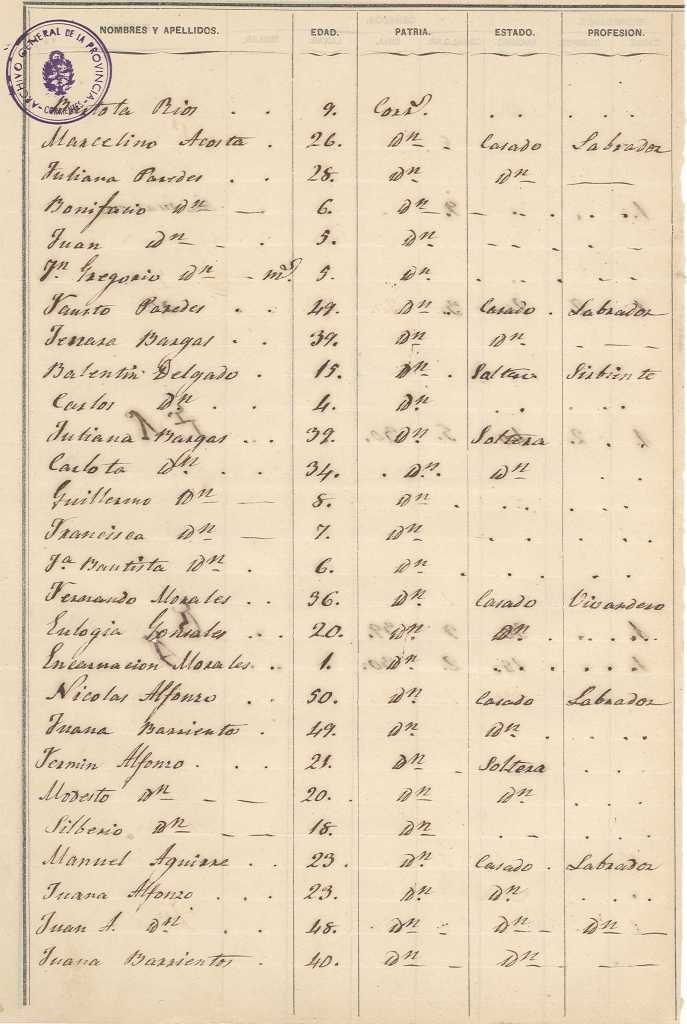 NOMBRES Y APELLIDOS. EDAD. PATRIA. ESTADO. PROFESION.
ARCHIVO GENERAL DE LA PROVINCIA - CORRIENTES -
Rios . . 9. Corrs. . . . . .
Marcelino Acosta . 26. Dn - Casado Labrador
Juliana Paredes . . 28. Dn Dn —
Bonifacio Dn — 6. Dn
Juan Dn - . 5. Dn
Jn Gregorio Dn - ms. 5. Dn
Fausto Paredes . . 49. Dn Casado . Labrador
Bargas . . 39. Dn Dn
Balentin Delgado . 15. Dn . Soltero Sirbiente
Carlos Dn . . 4. Dn
Juliana Bargas . . 39. Dn Soltera
Carlota Dn . . 34. Dn Dn
Guillermo Dn — 8. Dn
Francisca Dn — 7. Dn
Ja Bautista Dn . 6. Dn
Fernando Morales . . 36. Dn Casado Vivandero
Eulogia Gonsales . . 20. Dn Dn
Encarnacion Morales . . 1. Dn
Nicolas Alfonzo . . 50. Dn Casado Labrador
Juana Barrientos . 49. Dn Dn
Fermin Alfonzo . . . 21. Dn Soltera
Modesto Dn - — 20. Dn Dn
Silberio Dn — — 18. Dn
Manuel Aguirre . . 23. Dn Casado . Labrador
Juana Alfonzo . . . 23. Dn Dn
Juan A. Dn . . 48. Dn Dn Dn
Juana Barrientos . 40. Dn Dn